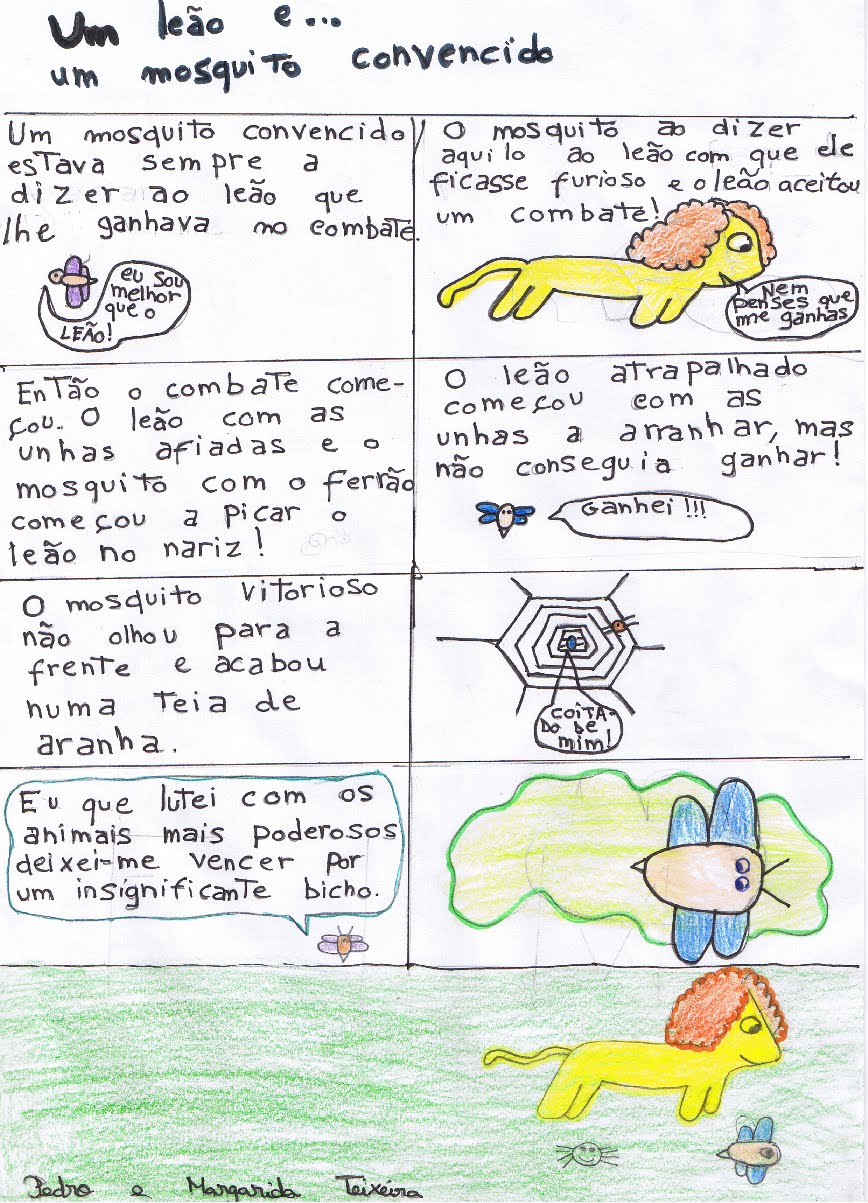 Um leão e...
um mosquito convencido
Um mosquito convencido
estava sempre a
dizer ao leão que
lhe ganhava no combate.
eu sou
melhor
que o
LEÃO!
O mosquito ao dizer
aquilo ao leão com que ele
ficasse furioso e o leão aceitou
um combate!
Nem
penses que
me ganhas
Então o combate come-
çou.. O leão com as
unhas afiadas e o
mosquito com o ferrão
começou a picar o
leão no nariz!
O leão atrapalhado
começou com as
unhas a arranhar, mas
não conseguia ganhar!
Ganhei !!!
O mosquito vitorioso
não olhou para a
frente e acabou
numa teia de
aranha.
COITA-
DO DE
mim!
Eu que lutei com os
animais mais poderosos
deixei-me vencer por
um insignificante bicho.
Pedro e Margarida Teixeira